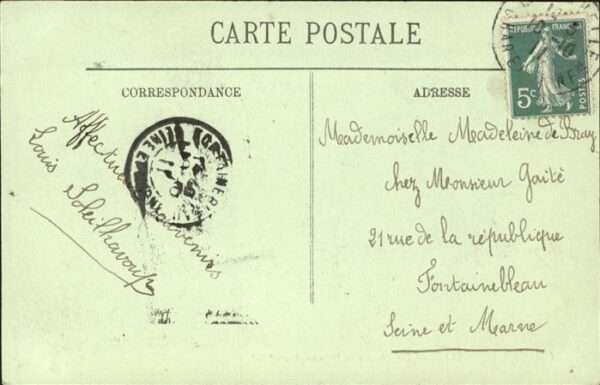 CARTE POSTALE
CORRESPONDANCE
ADRESSE
REPUBLIQUE FRANÇAISE
5c
POSTES
Affectueux souvenirs
Louis Soleilhavoup
Mademoiselle Madeleine de Bray
chez Monsieur Gaité
21 rue de la république
Fontainebleau
Seine et Marne